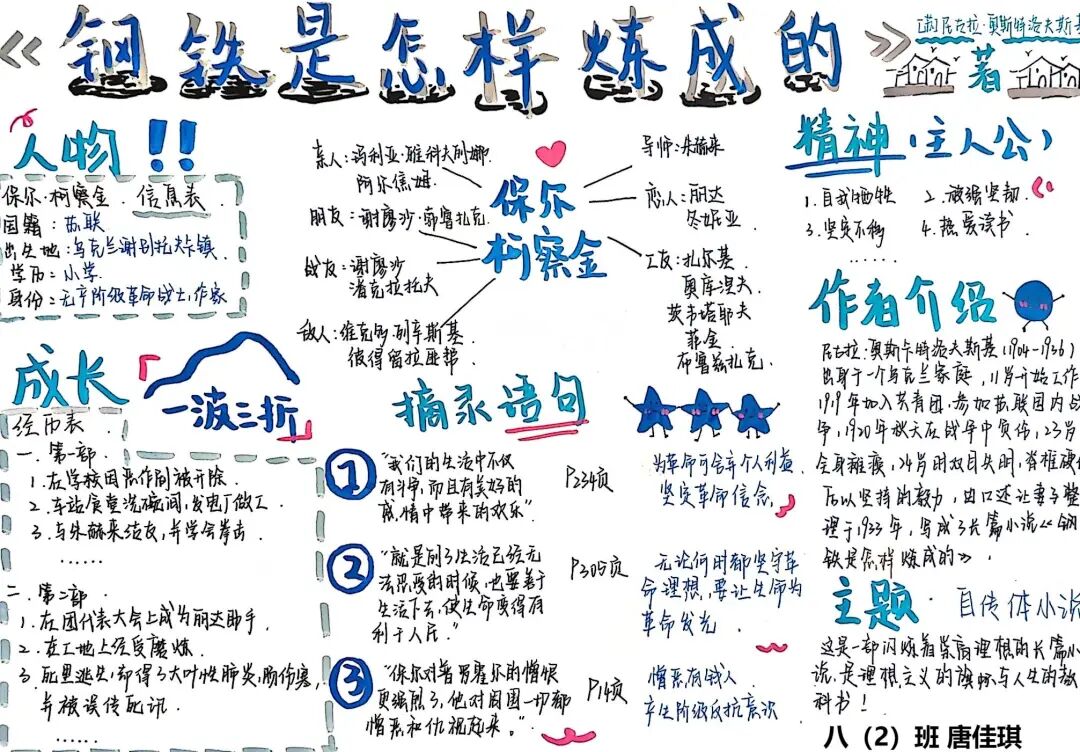 《钢铁是怎样炼成的》
[苏]尼古拉·奥斯特洛夫斯基
著
人物!!
保尔·柯察金 信息表
国籍：苏联
出生地：乌克兰谢别托夫卡镇
学历：小学
身份：无产阶级革命战士,作家
保尔
柯察金
亲人：玛利亚·雅科夫列娜
阿尔焦姆
朋友：谢廖沙·勃鲁扎克
战友：谢廖沙
潘克拉托夫
敌人：维克多·列辛斯基
彼得留拉匪帮
导师：朱赫来
恋人：丽达
冬妮亚
工友：扎尔基
奥库涅夫
茨韦塔耶夫
菲金
布鲁兹扎克
精神(主人公)
1.自我牺牲 2.顽强坚韧
3.坚贞不移 4.热爱读书
......
作者介绍
尼古拉·奥斯卡特洛夫斯基(1904-1936)
出身于一个乌克兰家庭,11岁开始工作
1919年加入共青团,参加苏联国内战
争,1920年秋天在战争中负伤,23岁
全身瘫痪,24岁时双目失明,脊椎硬化
后以坚持的毅力,由口述让妻子整
理于1933年,写成了长篇小说《钢
铁是怎样炼成的》.
主题·自传体小说
这是一部闪烁着崇高理想的长篇小
说,是理想主义的旗帜与人生的教
科书!
成长
一波三折
经历表
一.第一部
1.在学校因恶作剧被开除
2.车站食堂洗碗间,发电厂做工
3.与朱赫来结友,并学会拳击
......
二.第二部
1.在团代表大会上成为丽达助手
2.在工地上经受磨炼
3.死里逃生,却得了大叶性肺炎,肠伤寒,
并被误传死讯
......
摘录语句
① "我们的生活中不仅
有斗争,而且有美好的
感情中带来的欢乐".
P234页
为革命可舍弃个人利益
坚定革命信念.
② "就是到了生活已经无
法忍受的时候,也要善于
生活下去,使生命变得有
利于人民."
P305页
无论何时都坚守革
命理想,要让生命为
革命发光.
③ "保尔对普罗霍尔的憎恨
更强烈了,他对周围一切都
憎恶和仇视起来."
P14页
憎恶有钱人
产生阶级反抗意识
八（2）班 唐佳琪